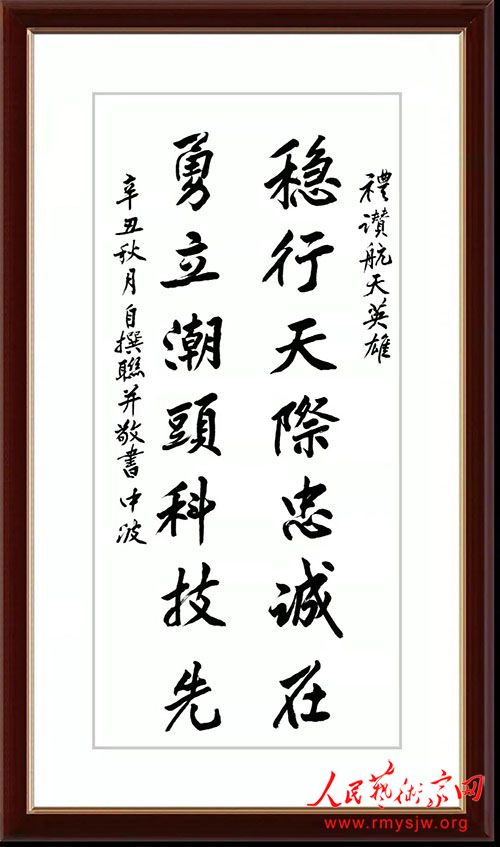 禮讚航天英雄
穏行天際忠誠在
勇立潮頭科技先
辛丑秋月自撰聯并敬書 中波
人民藝術家网
www.rmysjw.org